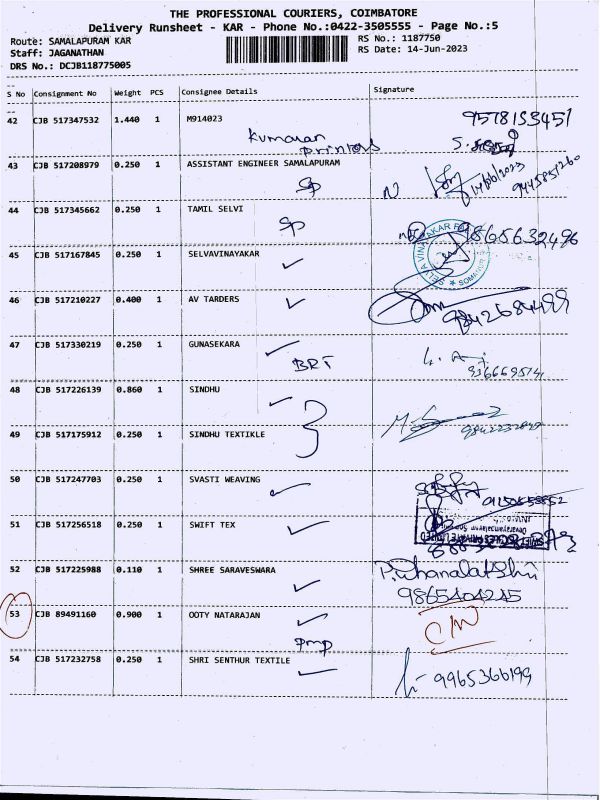 THE PROFESSIONAL COURIERS, COIMBATORE
Delivery Runsheet - KAR - Phone No.:0422-3505555 - Page No.:5
Route: SAMALAPURAM KAR
RS No.: 1187750
Staff: JAGANATHAN
RS Date: 14-Jun-2023
DRS No.: DCJB118775005
S No Consignment No Weight PCS Consignee Details Signature
42 CJB 517347532 1.440 1 M914023 9578133451
Kumaran
Printers
43 CJB 517208979 0.250 1 ASSISTANT ENGINEER SAMALAPURAM
SP 14/06/2023 9445851260
44 CJB 517345662 0.250 1 TAMIL SELVI
SP 9865632496
45 CJB 517167845 0.250 1 SELVAVINAYAKAR
46 CJB 517210227 0.400 1 AV TARDERS
9842684499
47 CJB 517330219 0.250 1 GUNASEKARA
BRT
48 CJB 517226139 0.860 1 SINDHU
49 CJB 517175912 0.250 1 SINDHU TEXTIKLE
50 CJB 517247703 0.250 1 SVASTI WEAVING
51 CJB 517256518 0.250 1 SWIFT TEX
52 CJB 517225988 0.110 1 SHREE SARAVESWARA P. Dhanalakshmi
9865404245
53 CJB 89491160 0.900 1 OOTY NATARAJAN
pmp
54 CJB 517232758 0.250 1 SHRI SENTHUR TEXTILE
9965366199